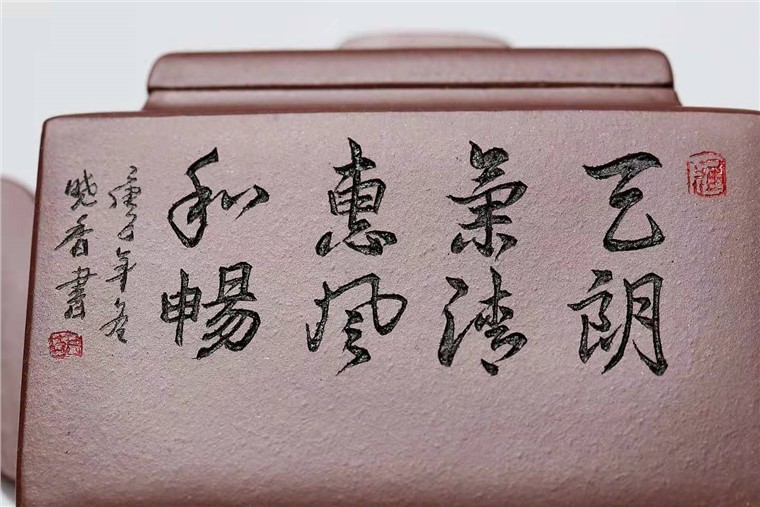 天朗
氣清
惠風
和暢
庚子年冬
曉香書